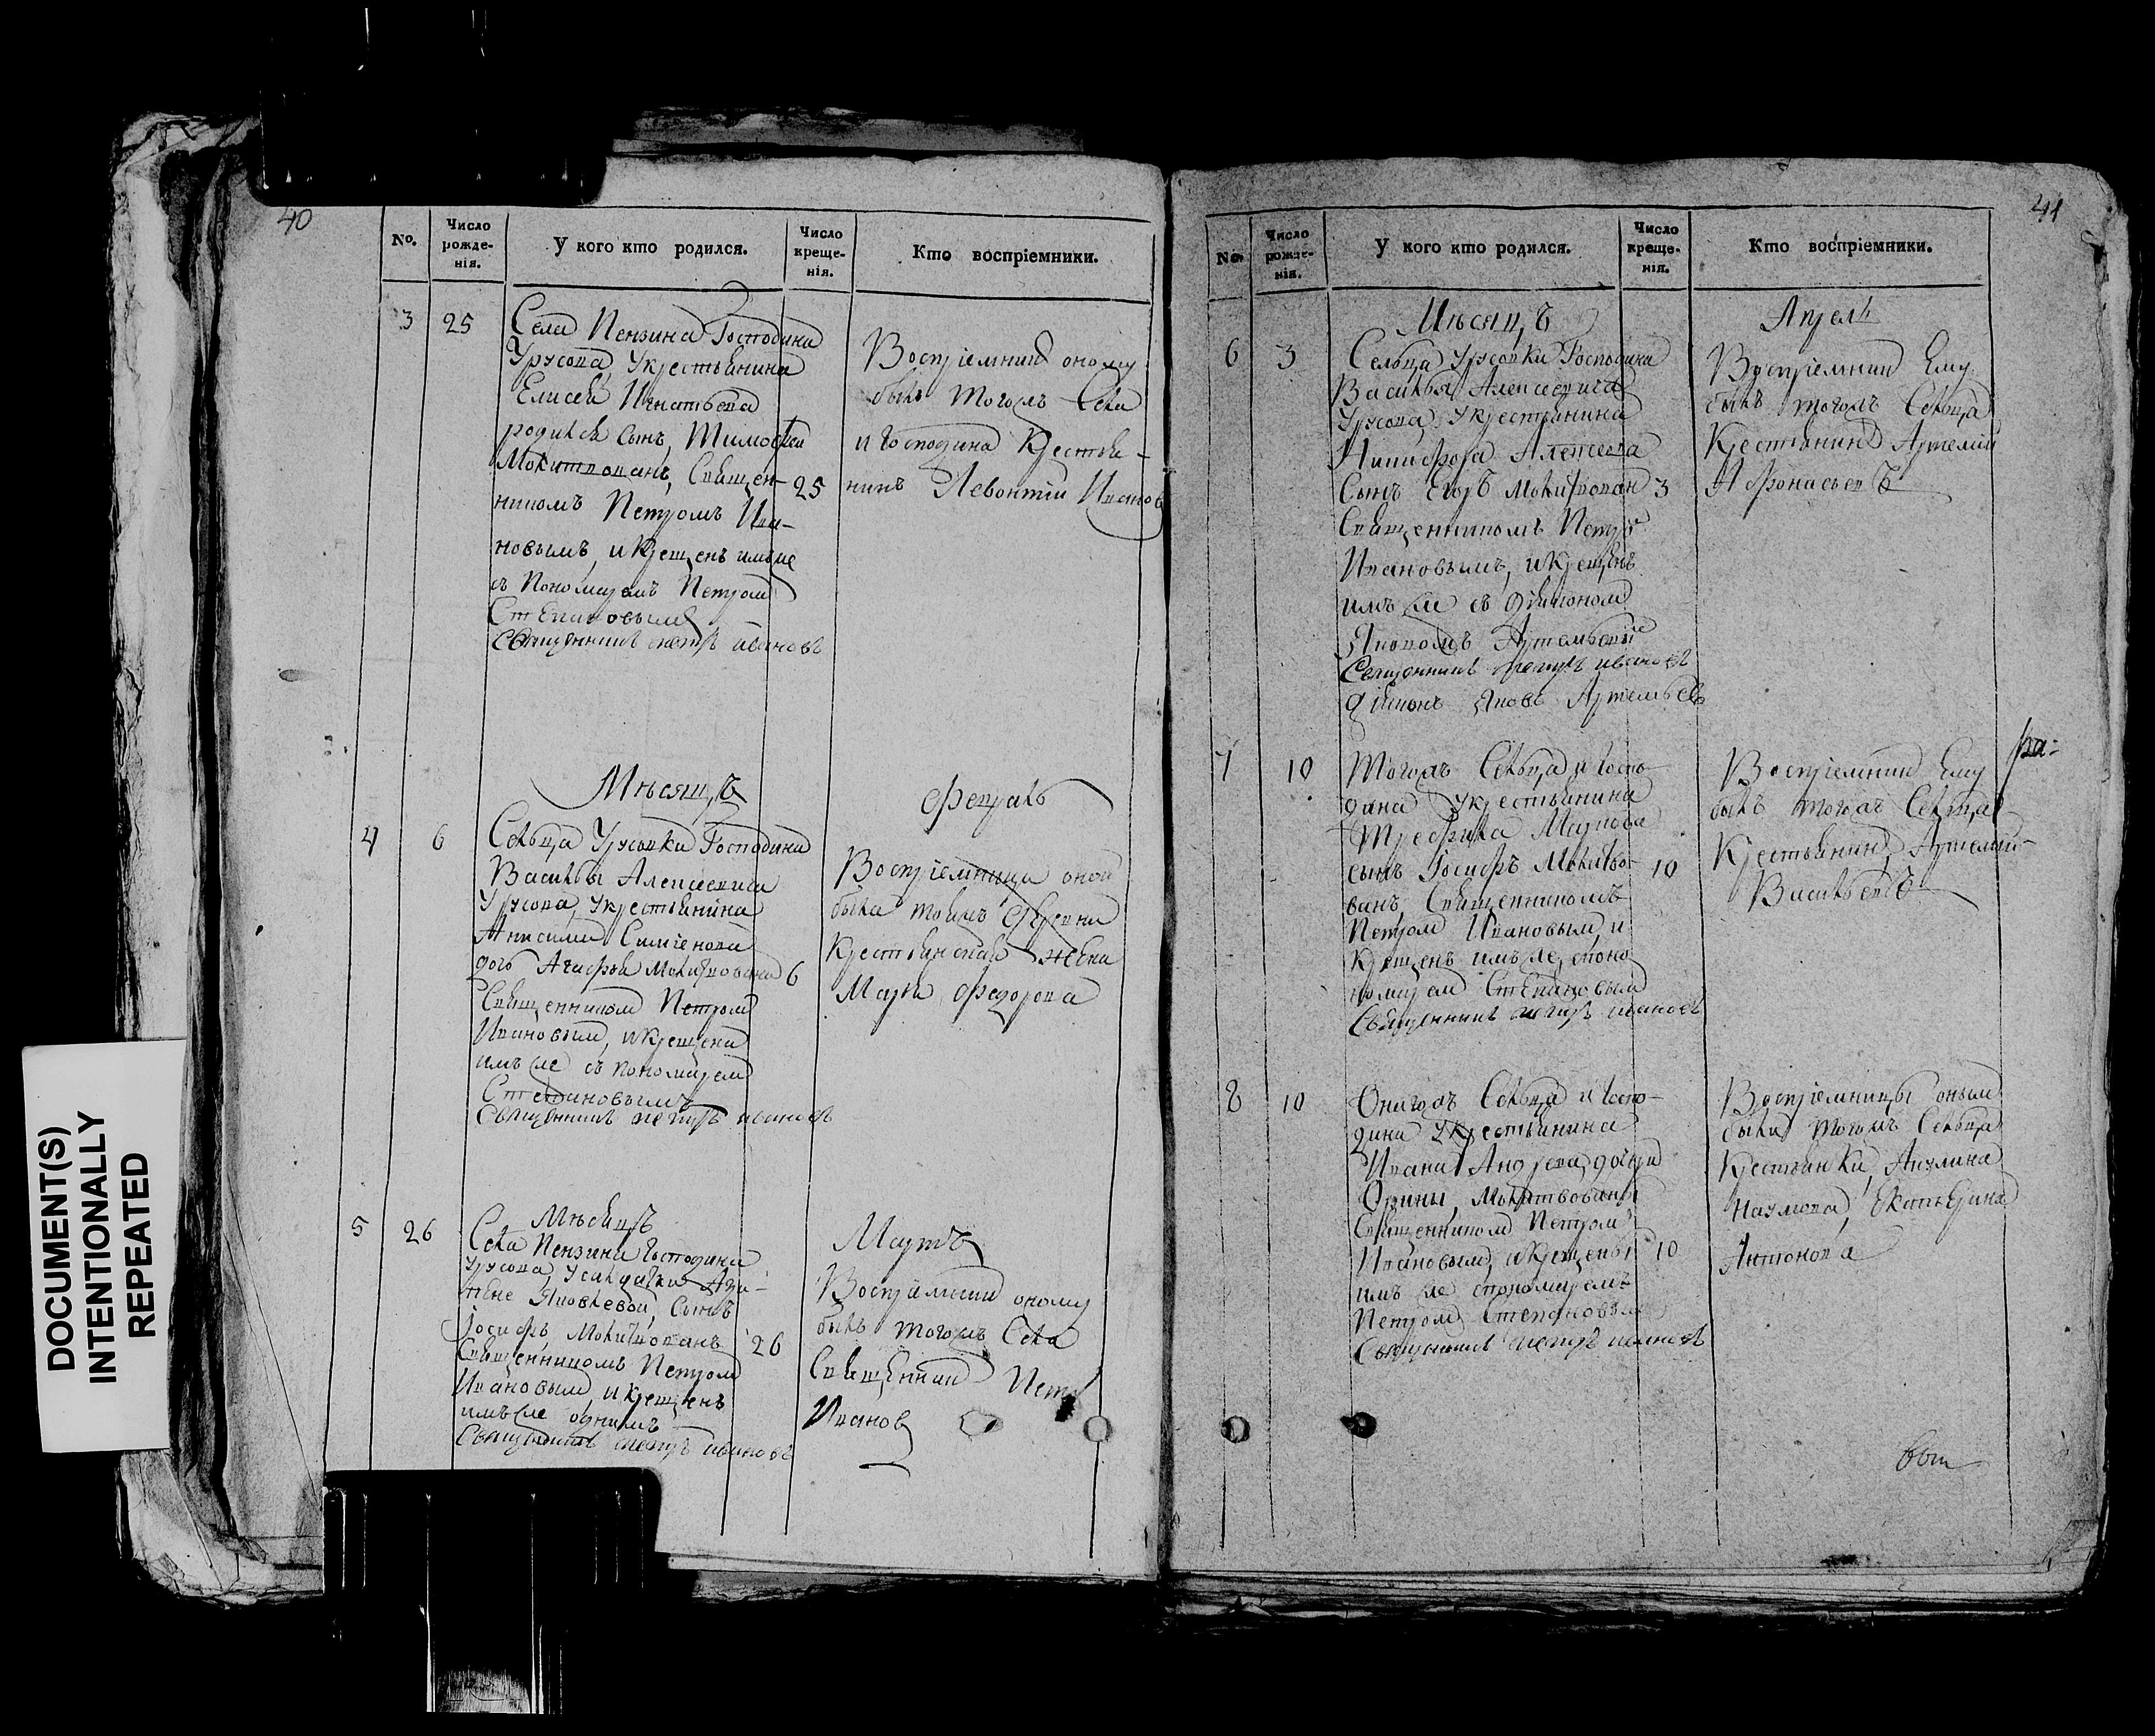 40
No.
Число рожде-нія.
У кого кто родился.
Число креще-нія.
Кто воспріемники.
3 25
Села Пензина Господина
Урусова, Укрестьянина
Елисея Игнатьева
родился сынъ, Тимофей
Молитвованъ, Священ- 25
никомъ Петромъ Ива-
новымъ, и крещенъ имъже
съ Пономаремъ Петромъ
Степановымъ
Священникъ петръ ивановъ
Воспріемник оному
былъ тогожъ Села
и Господина Крестья-
нинъ Левонтій
Мѣсяцъ
Февраль
4 6
Сельца Урусовки Господина
Василья Алексеевича
Урусова, Укрестьянина
Анисима Симіонова
дочь Агафья Молитвована 6
Священником Петром
Ивановым, и крещена
имъ же съ пономарем
Степановымъ
Священникъ петръ ивановъ
Воспріемница оной
была тоежъ деревни
Крестьянская жена
Марья Федорова
Мѣсяцъ
Мартъ
5 26
Села Пензина Господина
Урусова, Усолдатки
Яковлевой, Сынъ
Іосифъ, Молитвованъ 26
Священникомъ Петром
Ивановым, и крещенъ
имъ же однимъ
Священникъ петръ ивановъ
Воспріемник оному
былъ тогожъ Села
Священник Петръ
Иванов
41
No.
Число рожде-нія.
У кого кто родился.
Число креще-нія.
Кто воспріемники.
Мѣсяцъ
Апрель
6 3
Сельца Урусовки Господина
Василья Алексеевича
Урусова Укрестьянина
Никифора Алексеева
Сынъ Егоръ Молитвован 3
Священникомъ Петр
Ивановымъ, и крещенъ
имъ же съ дьяконом
Яковомъ Артемьевы
Священникъ петръ ивановъ
діяконъ Яковъ Артемьевъ
Воспріемник Ему
былъ тогожъ Сельца
Крестьянин Артемій
Афонасьевъ
7 10
Тогожъ Сельца и Госпо-
дина Укрестьянина
Трефила Маркова
сынъ Іосифъ Молитво- 10
ванъ, Священникомъ
Петром Ивановым, и
крещенъ имъ же, споно
номарем Степановым
Священникъ петръ ивановъ
Воспріемник Ему
былъ тогожъ Сельца
Крестьянин, Артемий
Васильевъ
ра:
8 10
Оногожъ Сельца и Госпо-
дина Укрестьянина
Ивана Андреева, дочери
Орины, Молитвованы
Священником Петром
Ивановым, и крещены 10
имъ же спономаремъ
Петром Степановым
Священникъ петръ ивановъ
Воспріемницы оным
были тогожъ Сельца
Крестьянки, Акулина
Наумова, Екатерина
Антонова
DOCUMENT(S)
INTENTIONALLY
REPEATED